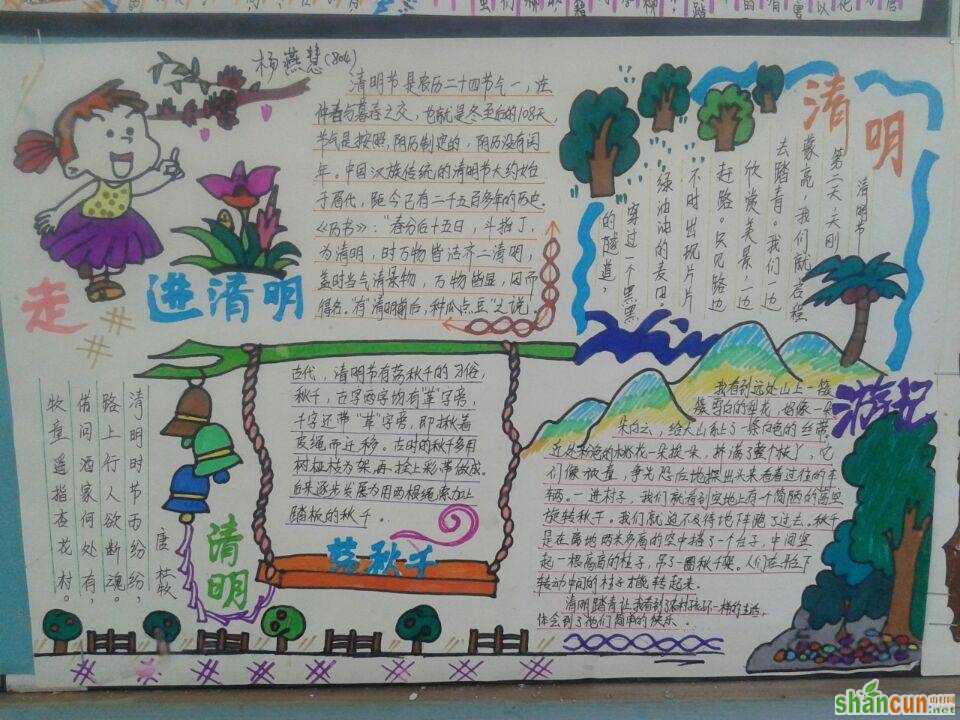 杨燕慧(804)
清明节是农历二十四节气一,在
仲春与暮春之交,也就是冬至后的108天
节气是按照,阴历制定的,阴历没有闰
年,中国汉族传统的清明节大约始
于周代,距今已有二千五百多年的历史.
《历书》:"春分后十五日,斗指丁,
为清明,时万物皆洁齐二清明,
盖时当气清景物,万物皆显,因而
得名.有"清明前后,种瓜点豆"之说!
走
进清明
清明
清明节
第二天,天刚
蒙亮,我们就启程
去踏青。我们一边
欣赏美景,一边
赶路。只见路边
不时出现片片
绿油油的麦田。
穿过一个黑黑
的隧道,
清明时节雨纷纷,
路上行人欲断魂。
借问酒家何处有,
牧童遥指杏花村。
唐 杜牧
清明
古代,清明节有荡秋千的习俗,
秋千,古字两字均有"革"字旁,
千字还带"革"字旁,即揪着
皮绳而迁移。古时的秋千多用
树桠枝为架,再栓上彩带做成.
后来逐步发展为用两根绳索加上
踏板的秋千.
荡秋千
游记
我看到远处山上一簇
簇雪白的梨花,好像一
朵白云,给大山系上了一条白色的丝带.
近处粉色的桃花一朵挨一朵,挤满了整个枝丫,它
们像被谁,争先恐后地探出头来看着过往的车
辆。一进村子,我们就看到空地上有个简陋的高空
旋转秋千。我们就迫不及待地下跑了过去。秋千
是在离地两米多高的空中搭了一个台子,中间竖
起一根高高的柱子,吊了一圈秋千架。人们在台下
转动中间的柱子才能转起来.
清明踏青让我看到了农村孩子不一样的生活,
体会到了他们简单的快乐.
shancun
山村网
.net